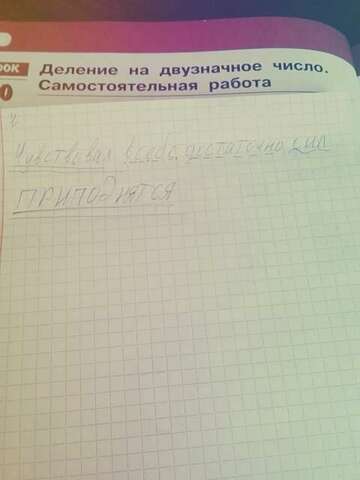 РОК
Деление на двузначное число.
1
Самостоятельная работа
Чувствовал в себе достаточно сил
приподнятся